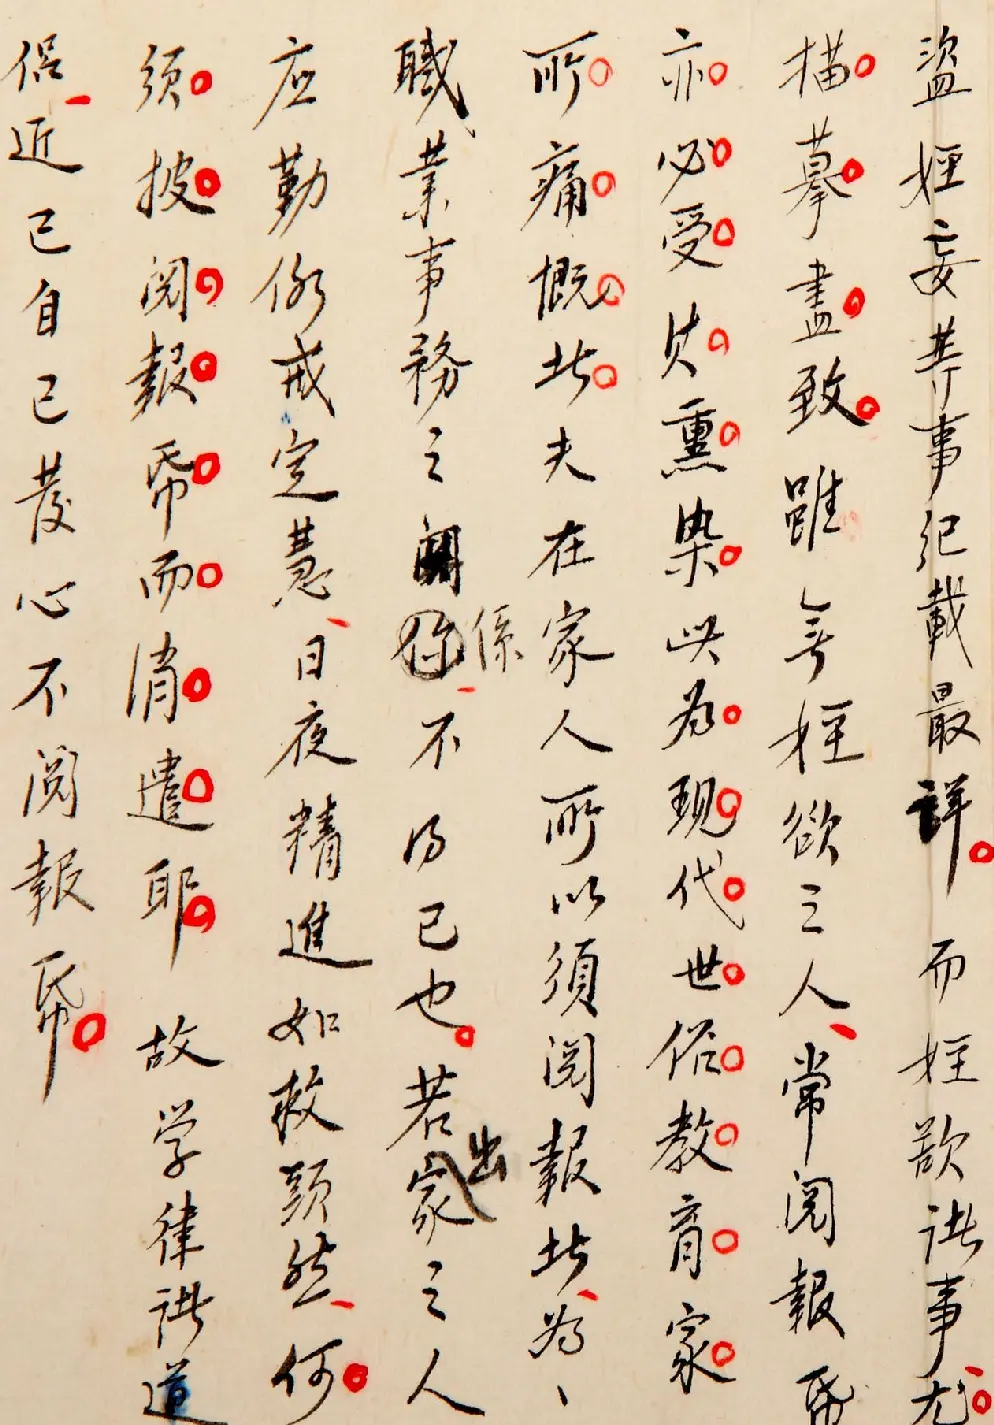 盜婬妄等事紀載最詳。而婬欲諸事、尤
描摹盡致。雖無婬欲之人、常閱報帋
亦必受其熏染此為現代世俗教育家
所痛慨者夫在家人所以須閱報者、為、
職業事務之關係、不得已也。若出家之人
应勤修戒定慧、日夜精進如救頭然、何
須披閱報帋而消遣耶 故学律諸道
侶、近已自己發心不閱報帋。